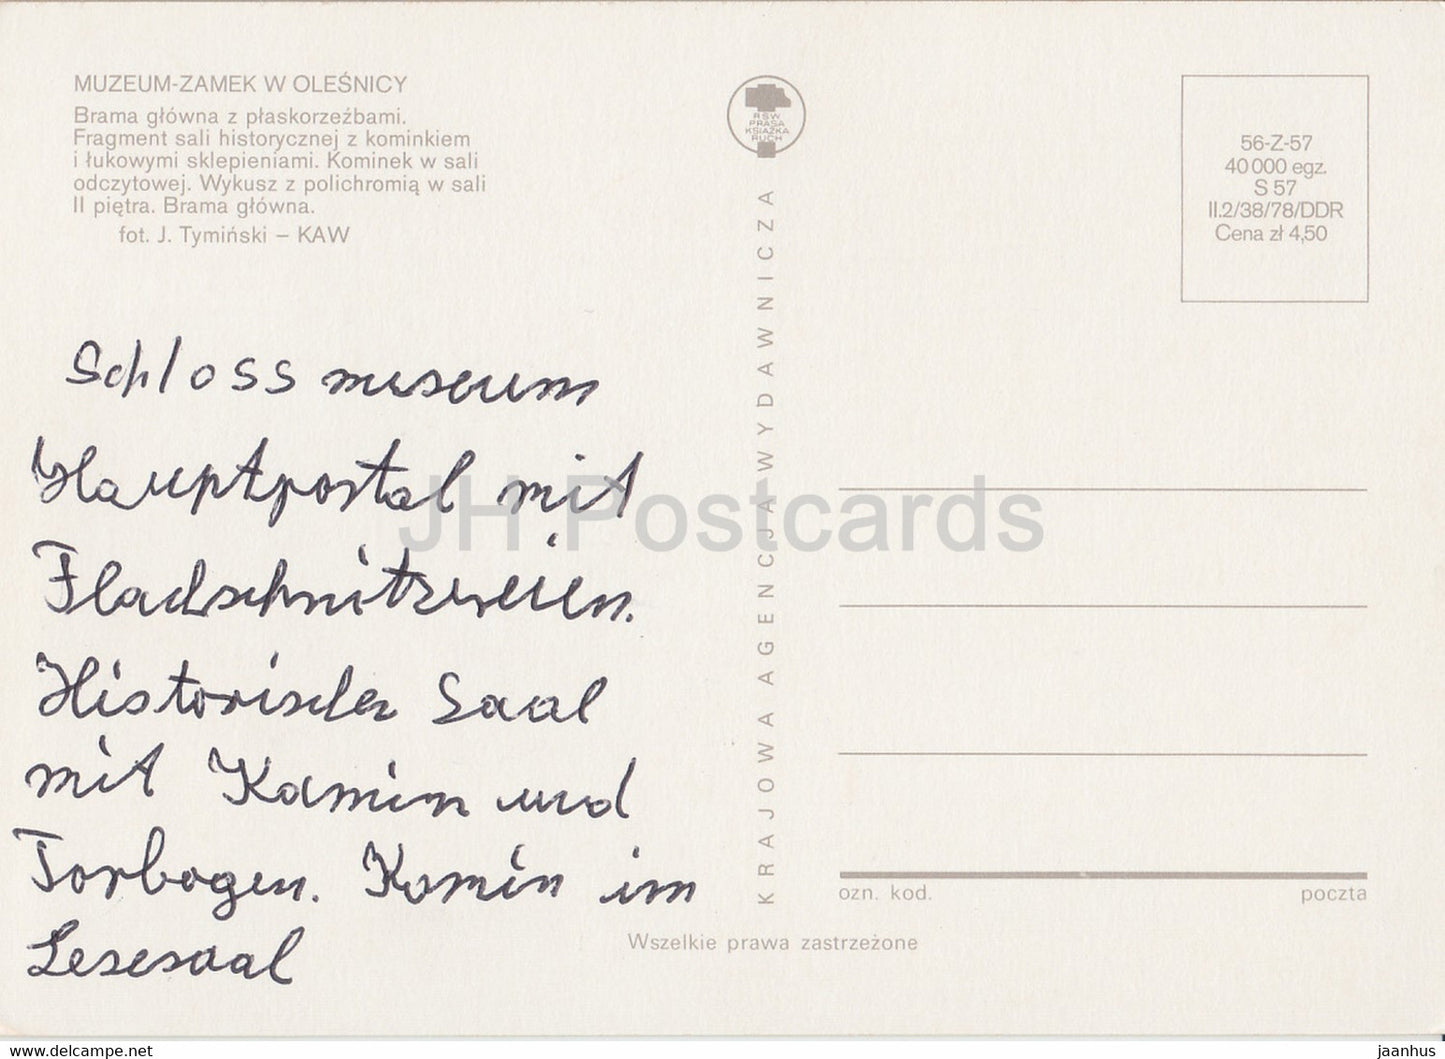 MUZEUM-ZAMEK W OLEŚNICY
Brama główna z płaskorzeźbami.
Fragment sali historycznej z kominkiem
i łukowymi sklepieniami. Kominek w sali
odczytowej. Wykusz z polichromią w sali
II piętra. Brama główna.
fot. J. Tymiński – KAW
Schlossmuseum
Hauptportal mit
Flachschnitzereien.
Historischer Saal
mit Kamin und
Torbogen. Kamin im
Lesesaal
RSW
PRASA
KSIĄŻKA
RUCH
KRAJOWA AGENCJA WYDAWNICZA
56-Z-57
40 000 egz.
S 57
II.2/38/78/DDR
Cena zł 4,50
ozn. kod.
poczta
Wszelkie prawa zastrzeżone
JH Postcards
https://www.delcampe.net
jaanhus